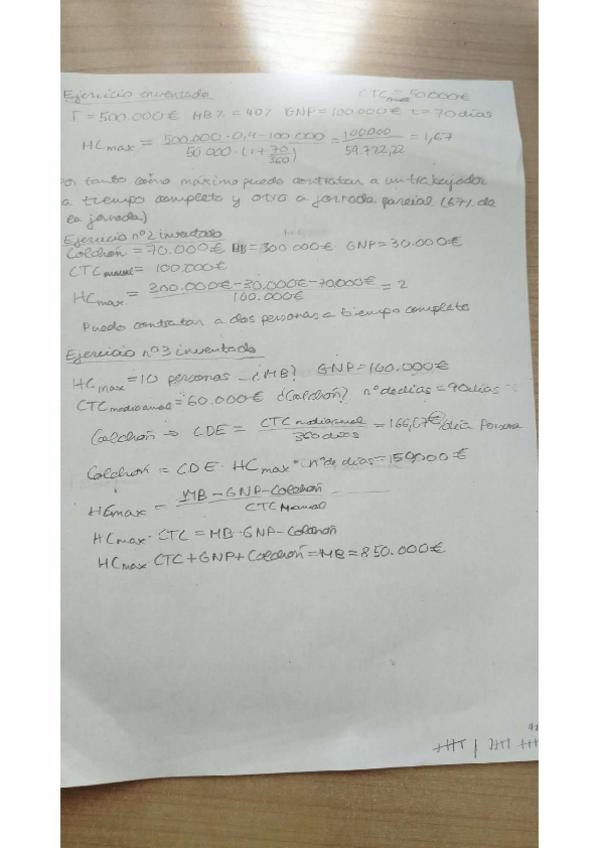 Ejercicio inventado CTC anual = 50.000€
I = 500.000€ MB% = 40% GNP = 100.000€ t = 70 días
HC max = 500.000 · 0,4 - 100.000 / 50 000 · (1 + 70/360) = 100000 / 59.722,22 = 1,67
Por tanto cómo máximo puedo contratar a un trabajador
a tiempo completo y otro a jornada parcial (67% de
la jornada)
Ejercicio nº 2 inventado
Colchón = 70.000€ MB = 300 000€ GNP = 30.000€
CTC anual = 100.000€
HC max = 300.000€ - 30.000€ - 70.000€ / 100.000€ = 2
Puedo contratar a dos personas a tiempo completo
Ejercicio nº 3 inventado
HC max = 10 personas ¿MB? GNP = 100.000€
CTC medio anual = 60.000€ ¿Colchón? nº de días = 90 días
Colchón ⇒ CDE = CTC medio anual / 360 días = 166,67€/día
Colchón = CDE · HC max · nº de días = 150.000€
HC max = MB - GNP - Colchón / CTC anual
HC max · CTC = MB - GNP - Colchón
HC max CTC + GNP + Colchón = MB = 850.000€